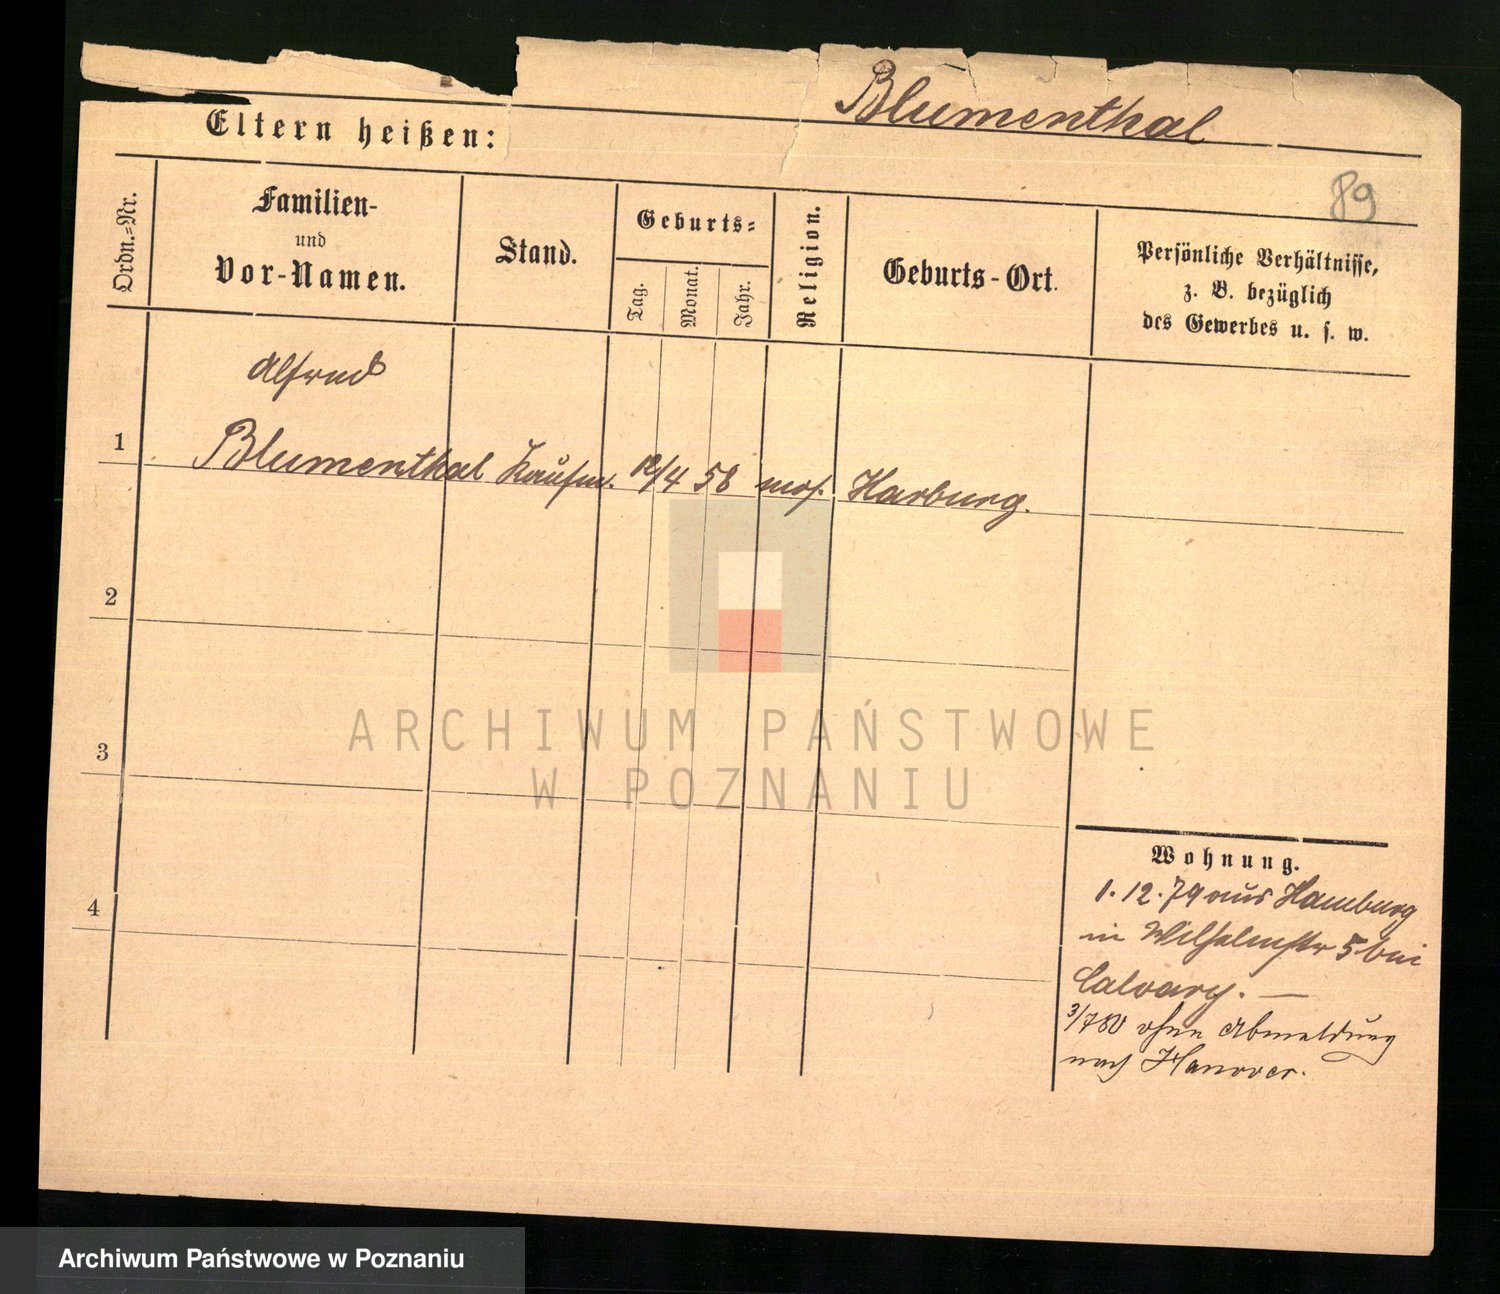 Blumenthal
Eltern heißen:
89
Ordn.=Nr.
Familien-
und
Vor-Namen.
Stand.
Geburts=
Tag.
Monat.
Jahr.
Religion.
Geburts-Ort.
Persönliche Verhältnisse,
z. B. bezüglich
des Gewerbes u. s. w.
Alfred
1 Blumenthal Kaufm. 12/4 58 mos. Harburg.
2
3
4
ARCHIWUM PAŃSTWOWE
W POZNANIU
Wohnung.
1.12.79 aus Hamburg
in Wilhelmstr 5 bei
Calvary. —
3/780 ohne Abmeldung
nach Hanover.
Archiwum Państwowe w Poznaniu